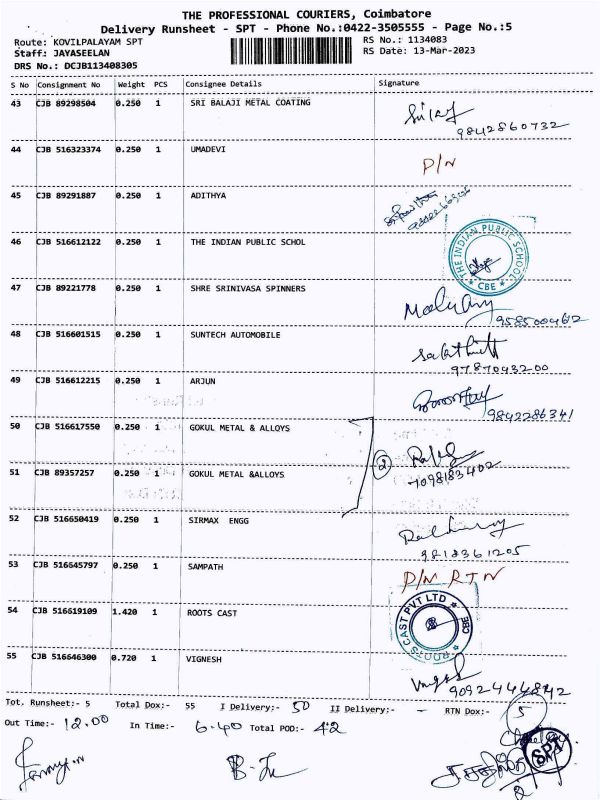 THE PROFESSIONAL COURIERS, Coimbatore
Delivery Runsheet - SPT - Phone No.:0422-3505555 - Page No.:5
Route: KOVILPALAYAM SPT RS No.: 1134083
Staff: JAYASEELAN RS Date: 13-Mar-2023
DRS No.: DCJB113408305
S No Consignment No Weight PCS Consignee Details Signature
43 CJB 89298504 0.250 1 SRI BALAJI METAL COATING
9842860732
44 CJB 516323374 0.250 1 UMADEVI P/N
45 CJB 89291887 0.250 1 ADITHYA
46 CJB 516612122 0.250 1 THE INDIAN PUBLIC SCHOL
THE INDIAN PUBLIC SCHOOL
CBE
47 CJB 89221778 0.250 1 SHRE SRINIVASA SPINNERS
48 CJB 516601515 0.250 1 SUNTECH AUTOMOBILE
9787043200
49 CJB 516612215 0.250 1 ARJUN
9842286341
50 CJB 516617550 0.250 1 GOKUL METAL & ALLOYS
2
51 CJB 89357257 0.250 1 GOKUL METAL &ALLOYS
52 CJB 516650419 0.250 1 SIRMAX ENGG
53 CJB 516645797 0.250 1 SAMPATH P/N RTN
54 CJB 516619109 1.420 1 ROOTS CAST
ROOTS CAST PVT LTD
CBE
55 CJB 516646300 0.720 1 VIGNESH
9092444842
Tot. Runsheet:- 5 Total Dox:- 55 I Delivery:- 50 II Delivery:- - RTN Dox:- 5
Out Time:- 12.00 In Time:- 6.40 Total POD:- 42
SPT
2